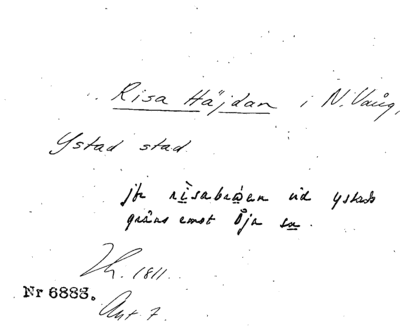 Risa Häjdan i N. Vång,
Ystad stad.
jfr risabrøen vid ystads
gräns emot Öja sn.
Zh. 1811.
Nr 6883.
Akt 7